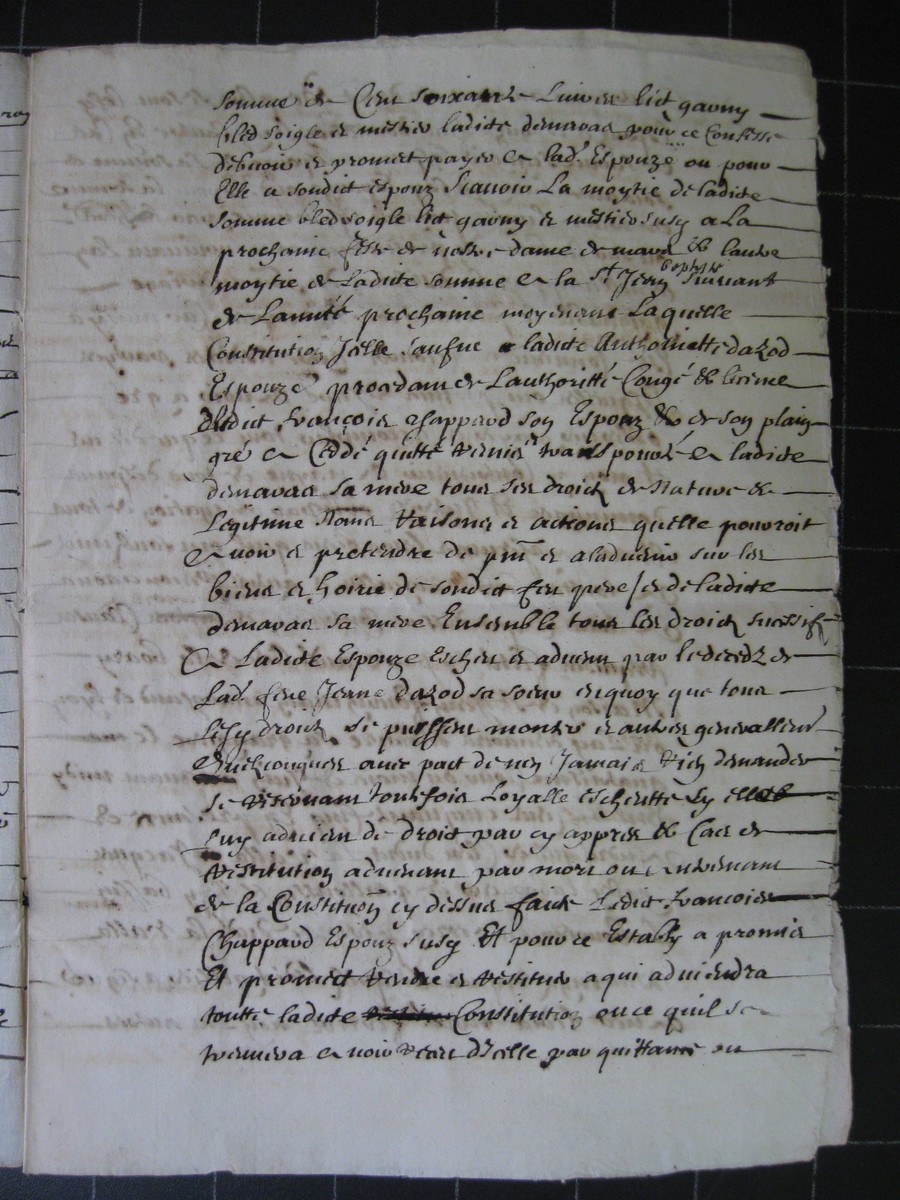 somme de Cent soixante Livres lict garny
bled soigle et mestier ladicte denavas pour ce Confesse
debvoir et promet payer a lad. Espouze ou pour
Elle a sondict espoux scavoir La moytie de ladicte
somme bled soigle lict garny et mestier susd a La
prochaine feste de nostre dame de mars et lautre
moytie de Ladicte somme a la St Jean baptiste suivant
de Lannée prochaine moyenant Laquelle
Constitution Jcelle ladicte Anthoinette dazod
Espouze procedant de Lauthoritté Congé et licence
dudict françois Chappard son Espoux et de son plain
gré a Ceddé quitté remis transporté a ladicte
denavas sa mere tous ses droictz de Nature et
Legitime Noms raisons et actions quelle pourroit
avoir et pretendre de pnt et aladvenir sur les
biens et hoirie de sondict feu pere / et de ladicte
denavas sa mere Ensemble tous les droictz sucessifz
a Ladicte Espouze Escheu et advenu par le decedz de
Lad. feue Jeanne dazod sa soeur en quoy que tous
Lesd droictz se puissent monter et autres generallement
Quelconques avec pact de nen Jamais rien demander
se reservant toutesfois Loyalle escheutte sy elle
luy advient de droict par cy appres et Cas de
restitution advenant par mort ou aultrement
de la Constitution cy dessus faicte Ledict francois
Chappard Espoux susd Et pour ce Estably a promis
Et promect rendre et restituer a qui adviendra
toutte ladicte Constitution ou ce quil se
trouvera avoir receu dicelle par quittance ou